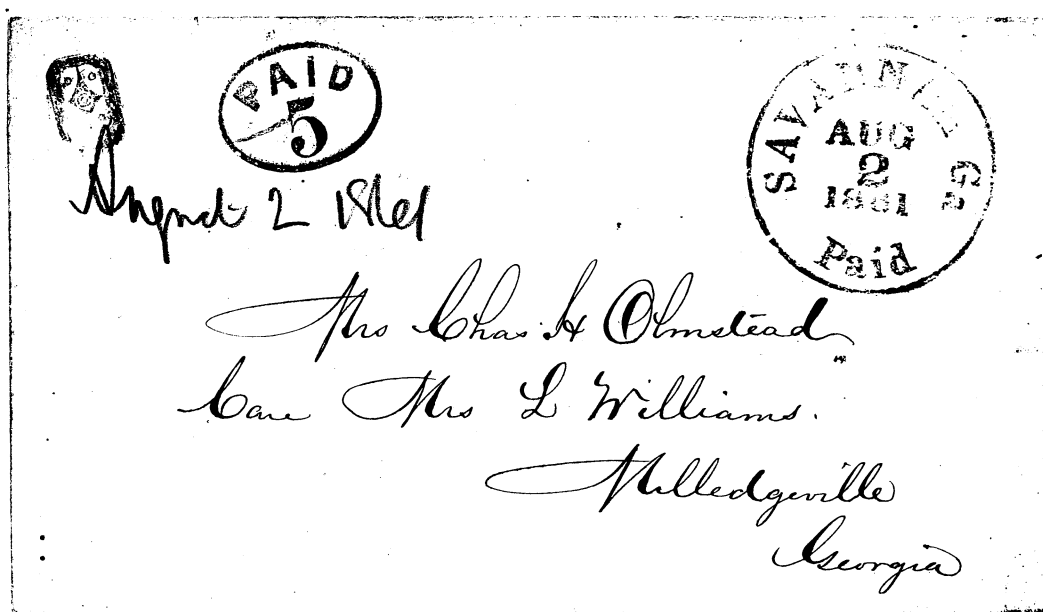 PAID
5
SAVANNAH Ga
AUG
2
1861
Paid
August 2 1861
Mrs Chas H Olmstead
Care Mrs L Williams.
Milledgeville
Georgia